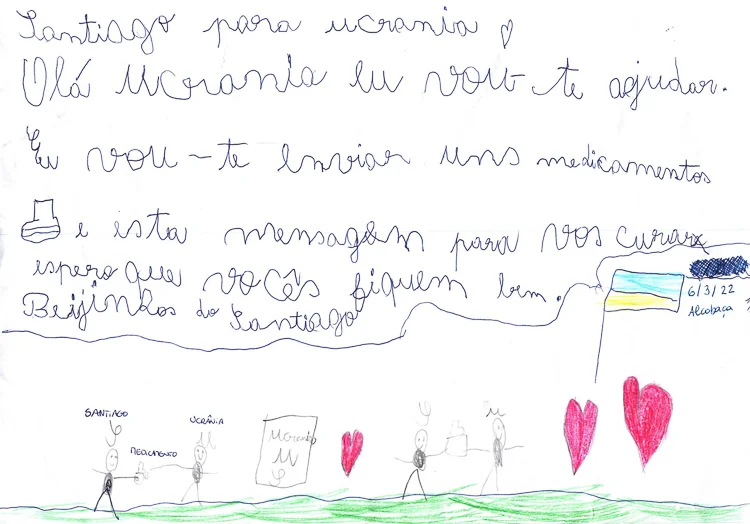 Santiago para ucrania
Olá Ucrania eu vou-te ajudar.
Eu vou-te enviar uns medicamentos
e esta mensagem para vos curar
espero que vocês fiquem bem.
Beijinhos do Santiago
6/3/22
Alcobaça
SANTIAGO
S
MEDICAMENTO
UCRÂNIA
U
Ucrania
U
S
S
U